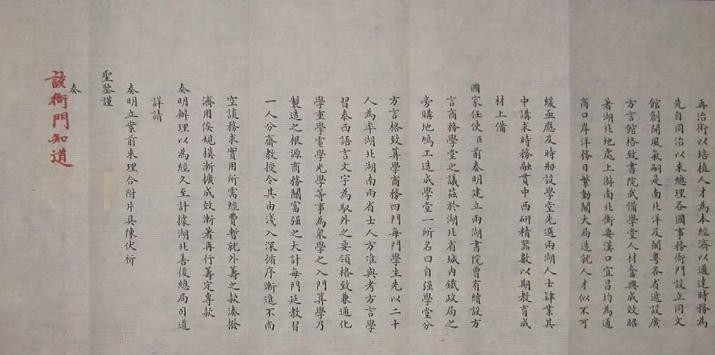 再治術以培植人才為本經濟以通達時務為
先自同治以來總理各國事務衙門設立同文
館創開風氣嗣是南北洋及閩粵各省遞設廣
方言館格致書院武備學堂人材奮興成效昭
著湖北地處上游南北衝要漢口宜昌均為通
商口岸洋務日繁動關大局造就人才似不可
緩亟應及時剏設學堂先選兩湖人士肄業其
中講求時務融貫中西研精器數以期教育成
材上備
國家任使臣前奏明建立兩湖書院曾有續設方
言商務學堂之議茲於湖北省城內鐵政局之
旁購地鳩工造成學堂一所名曰自強學堂分
方言格致算學商務四門每門學生先以二十
人為率湖北湖南兩省士人方准與考方言學
習泰西語言文字為馭外之要領格致兼通化
學重學電學光學等事為眾學之入門算學乃
製造之根源商務關富強之大計每門延教習
一人分齋教授令其由淺入深循序漸進不尚
空談務求實用所需經費暫就外籌之款湊撥
濟用俟規模漸擴成效漸著再行籌定專款
奏明辦理以為經久至計據湖北善後總局司道
詳請
奏明立案前來理合附片具陳伏祈
聖鑒謹
奏
該衙門知道